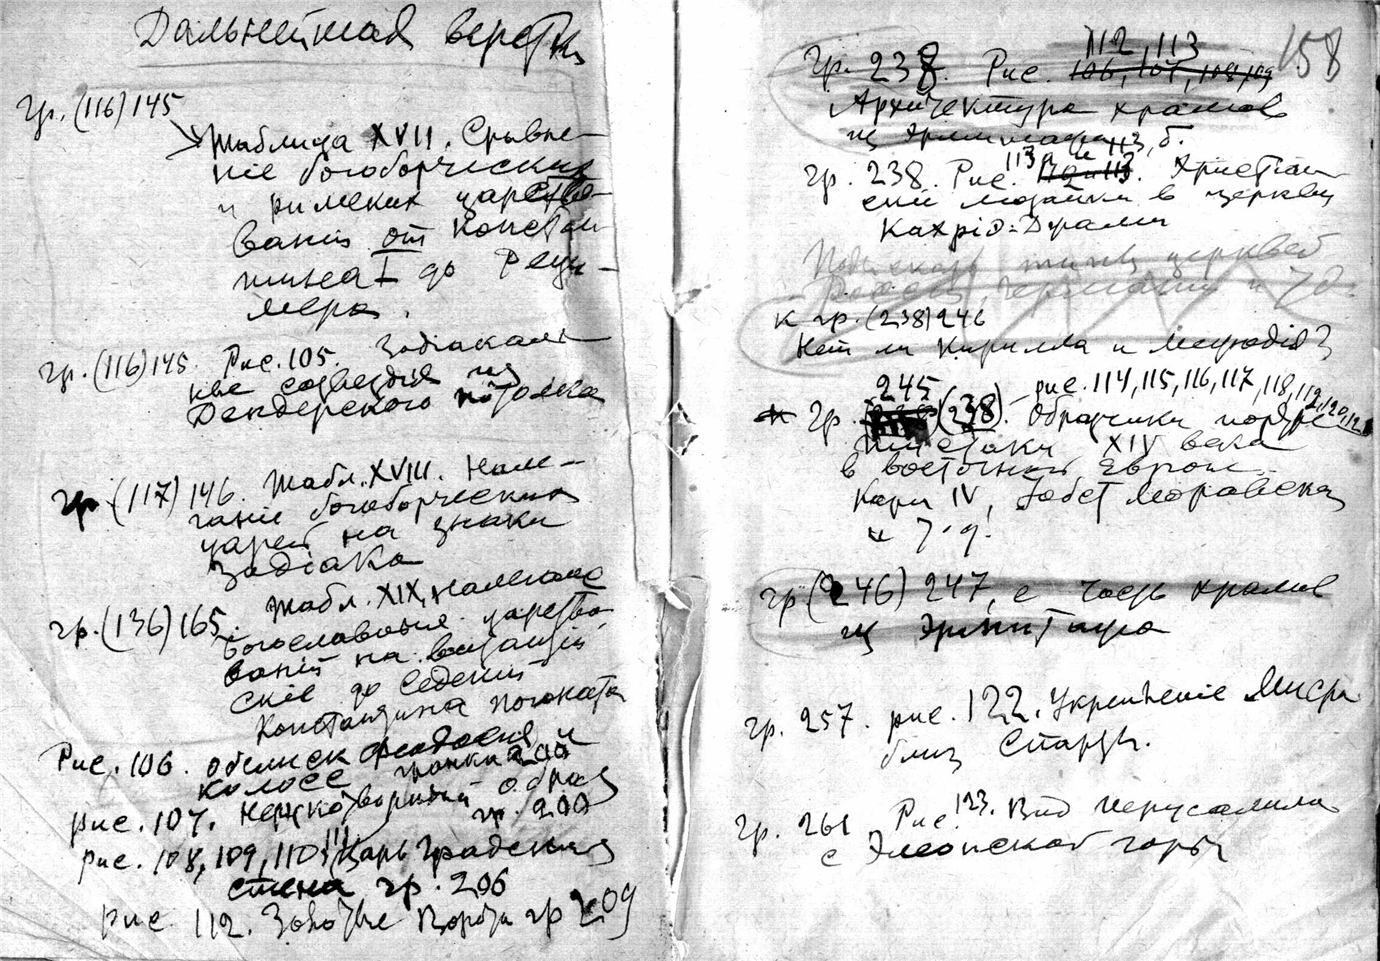 Дальнейшая верстка
гр. (116) 145
Таблица XVII. Сравне-
ние богоборческих
и римских царство-
ваний от Констан-
тина I до Реци-
мера.
гр. (116) 145. Рис. 105. Зодиакаль-
ные созвездия из
Дендерского потолка
гр. (117) 146. Табл. XVIII. Нале-
гание богоборческих
царей на знаки
Зодиака
гр. (136) 165. Табл. XIX, Налегание
богославовых царство-
ваний на византий-
ские до
Константина Погоната
Рис. 106. обелиск Феодосия и
колосс гранки 200
рис. 107. Нерукотворный образ
гр. 200
рис. 108, 109, 110, 111 Царьградская
стена гр. 206
рис. 112. Золотые Ворота гр 209
158
112, 113
гр. 238. Рис. 106, 107, 108, 109
Архитектура храмов
из Эрмитажа
113а и 113, б.
гр. 238. Рис. 112 и 113. Христиан-
ские мозаики в церкви
Кахрие-Джами
церквей
к гр. (238) 246
Нет ли Кирилла и Мефодія?
245 рис. 114, 115, 116, 117, 118, 119, 120, 121
гр. (238). Образчики портре-
тистики XIV века
в восточной Европе
Карл IV, Іобст Моравский
и т. д!
гр (246) 247, с часть храмов
из Эрмитажа
гр. 257. рис. 122. Укрепленіе Мисра
близ Спарты.
гр. 261 Рис. 123. Вид Иерусалима
с Элеонской горы